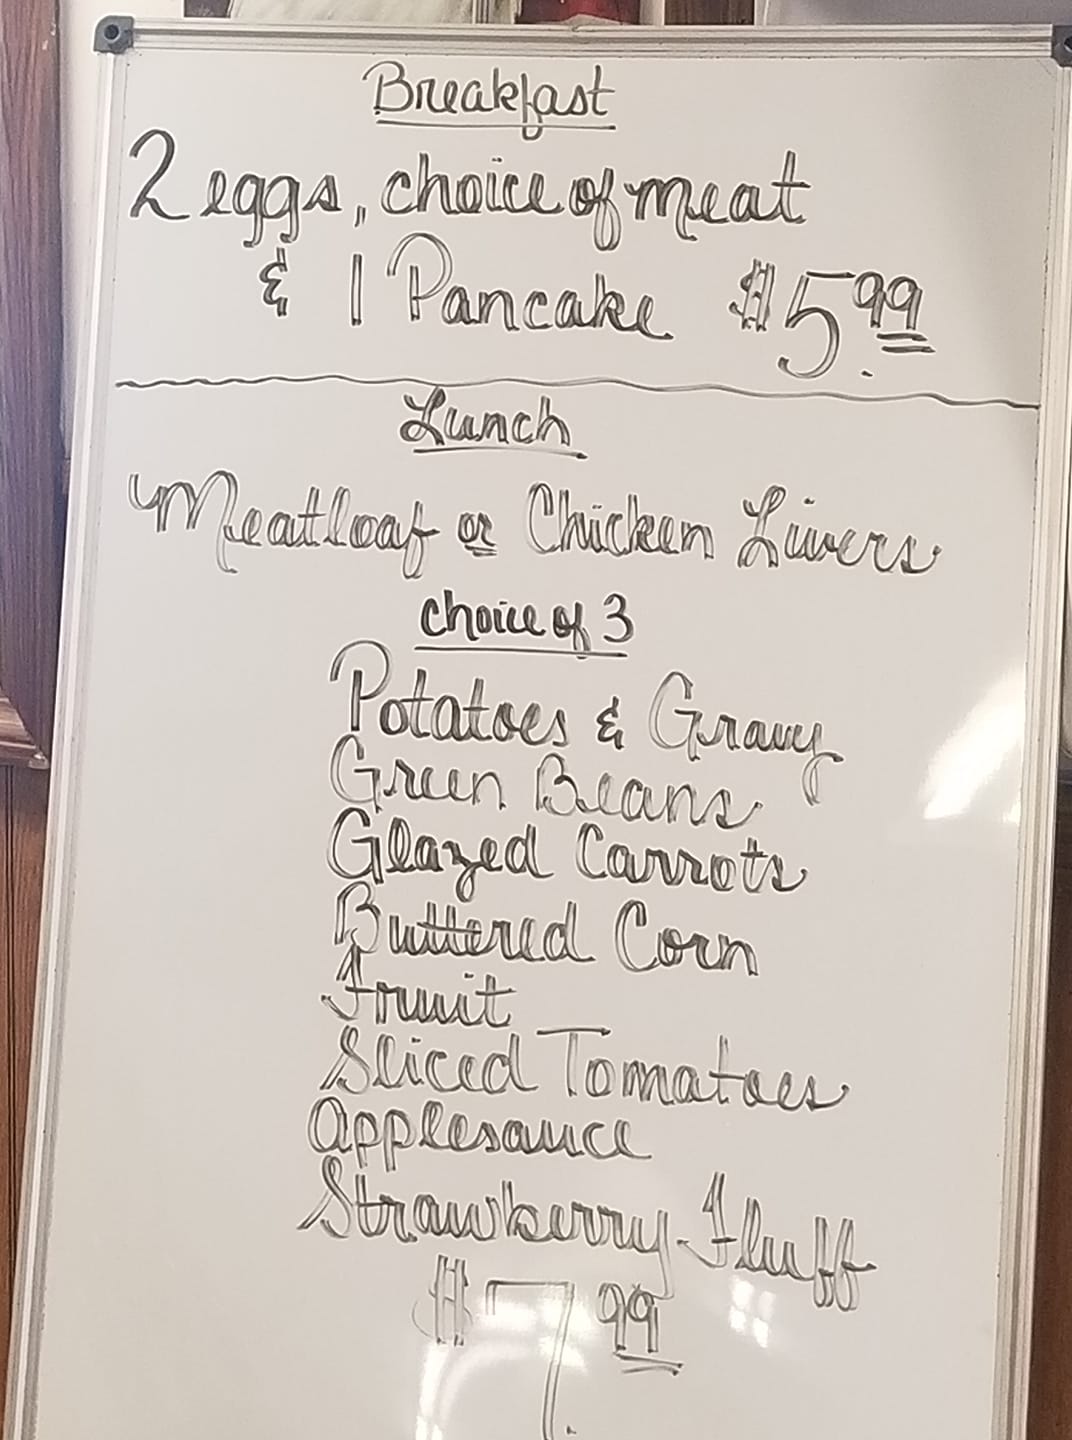 Breakfast
2 eggs, choice of meat
& 1 Pancake $5.99
Lunch
Meatloaf or Chicken Livers
choice of 3
Potatoes & Gravy
Green Beans
Glazed Carrots
Buttered Corn
Fruit
Sliced Tomatoes
Applesauce
Strawberry Fluff
$7.99